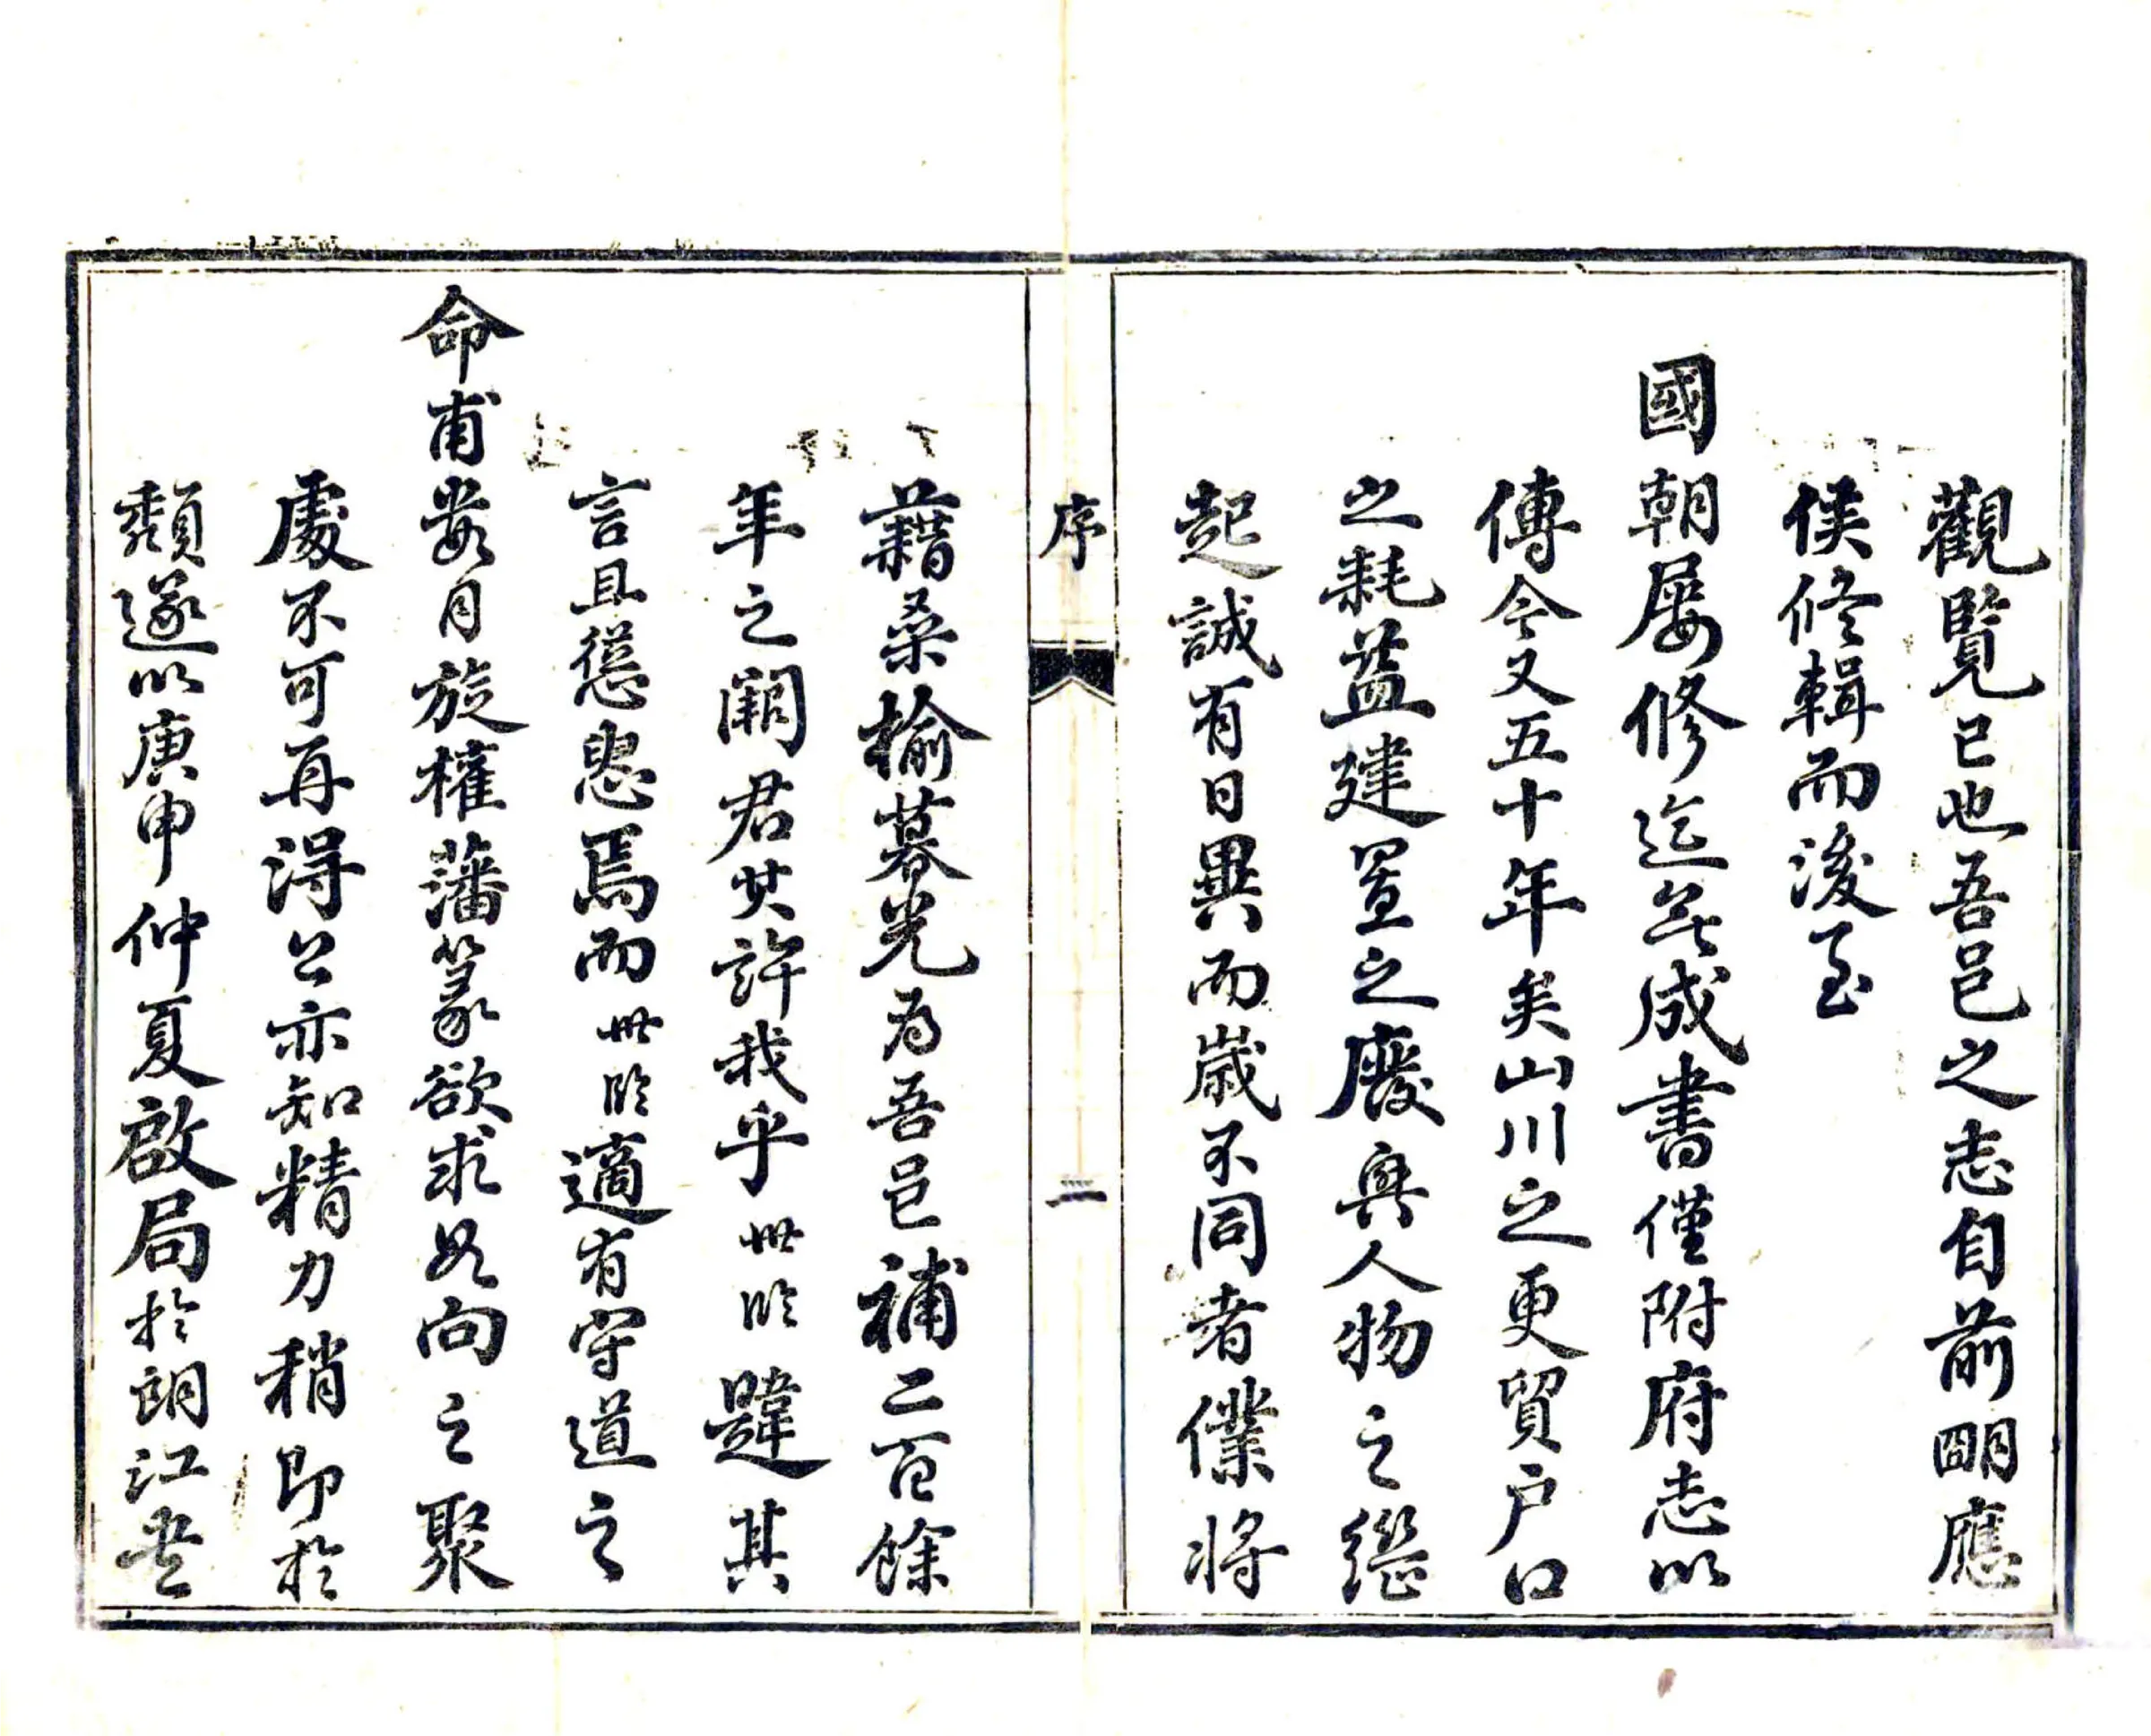 觀覽已也吾邑之志自前朙應
侯修輯而後至
國朝屢修迄無成書僅附府志以
傳今又五十年矣山川之更貿戶口
之耗益建置之廢興人物之繼
起誠有日異而嵗不同者僕將
序
三
藉桑榆暮光為吾邑補二百餘
年之闕君其許我乎世臨韙其
言且慫恿焉而世臨適有守道之
命甫數月旋權藩篆欲求如向之聚
處不可再得公亦知精力稍即於
頹遂以庚申仲夏啟局於朗江書